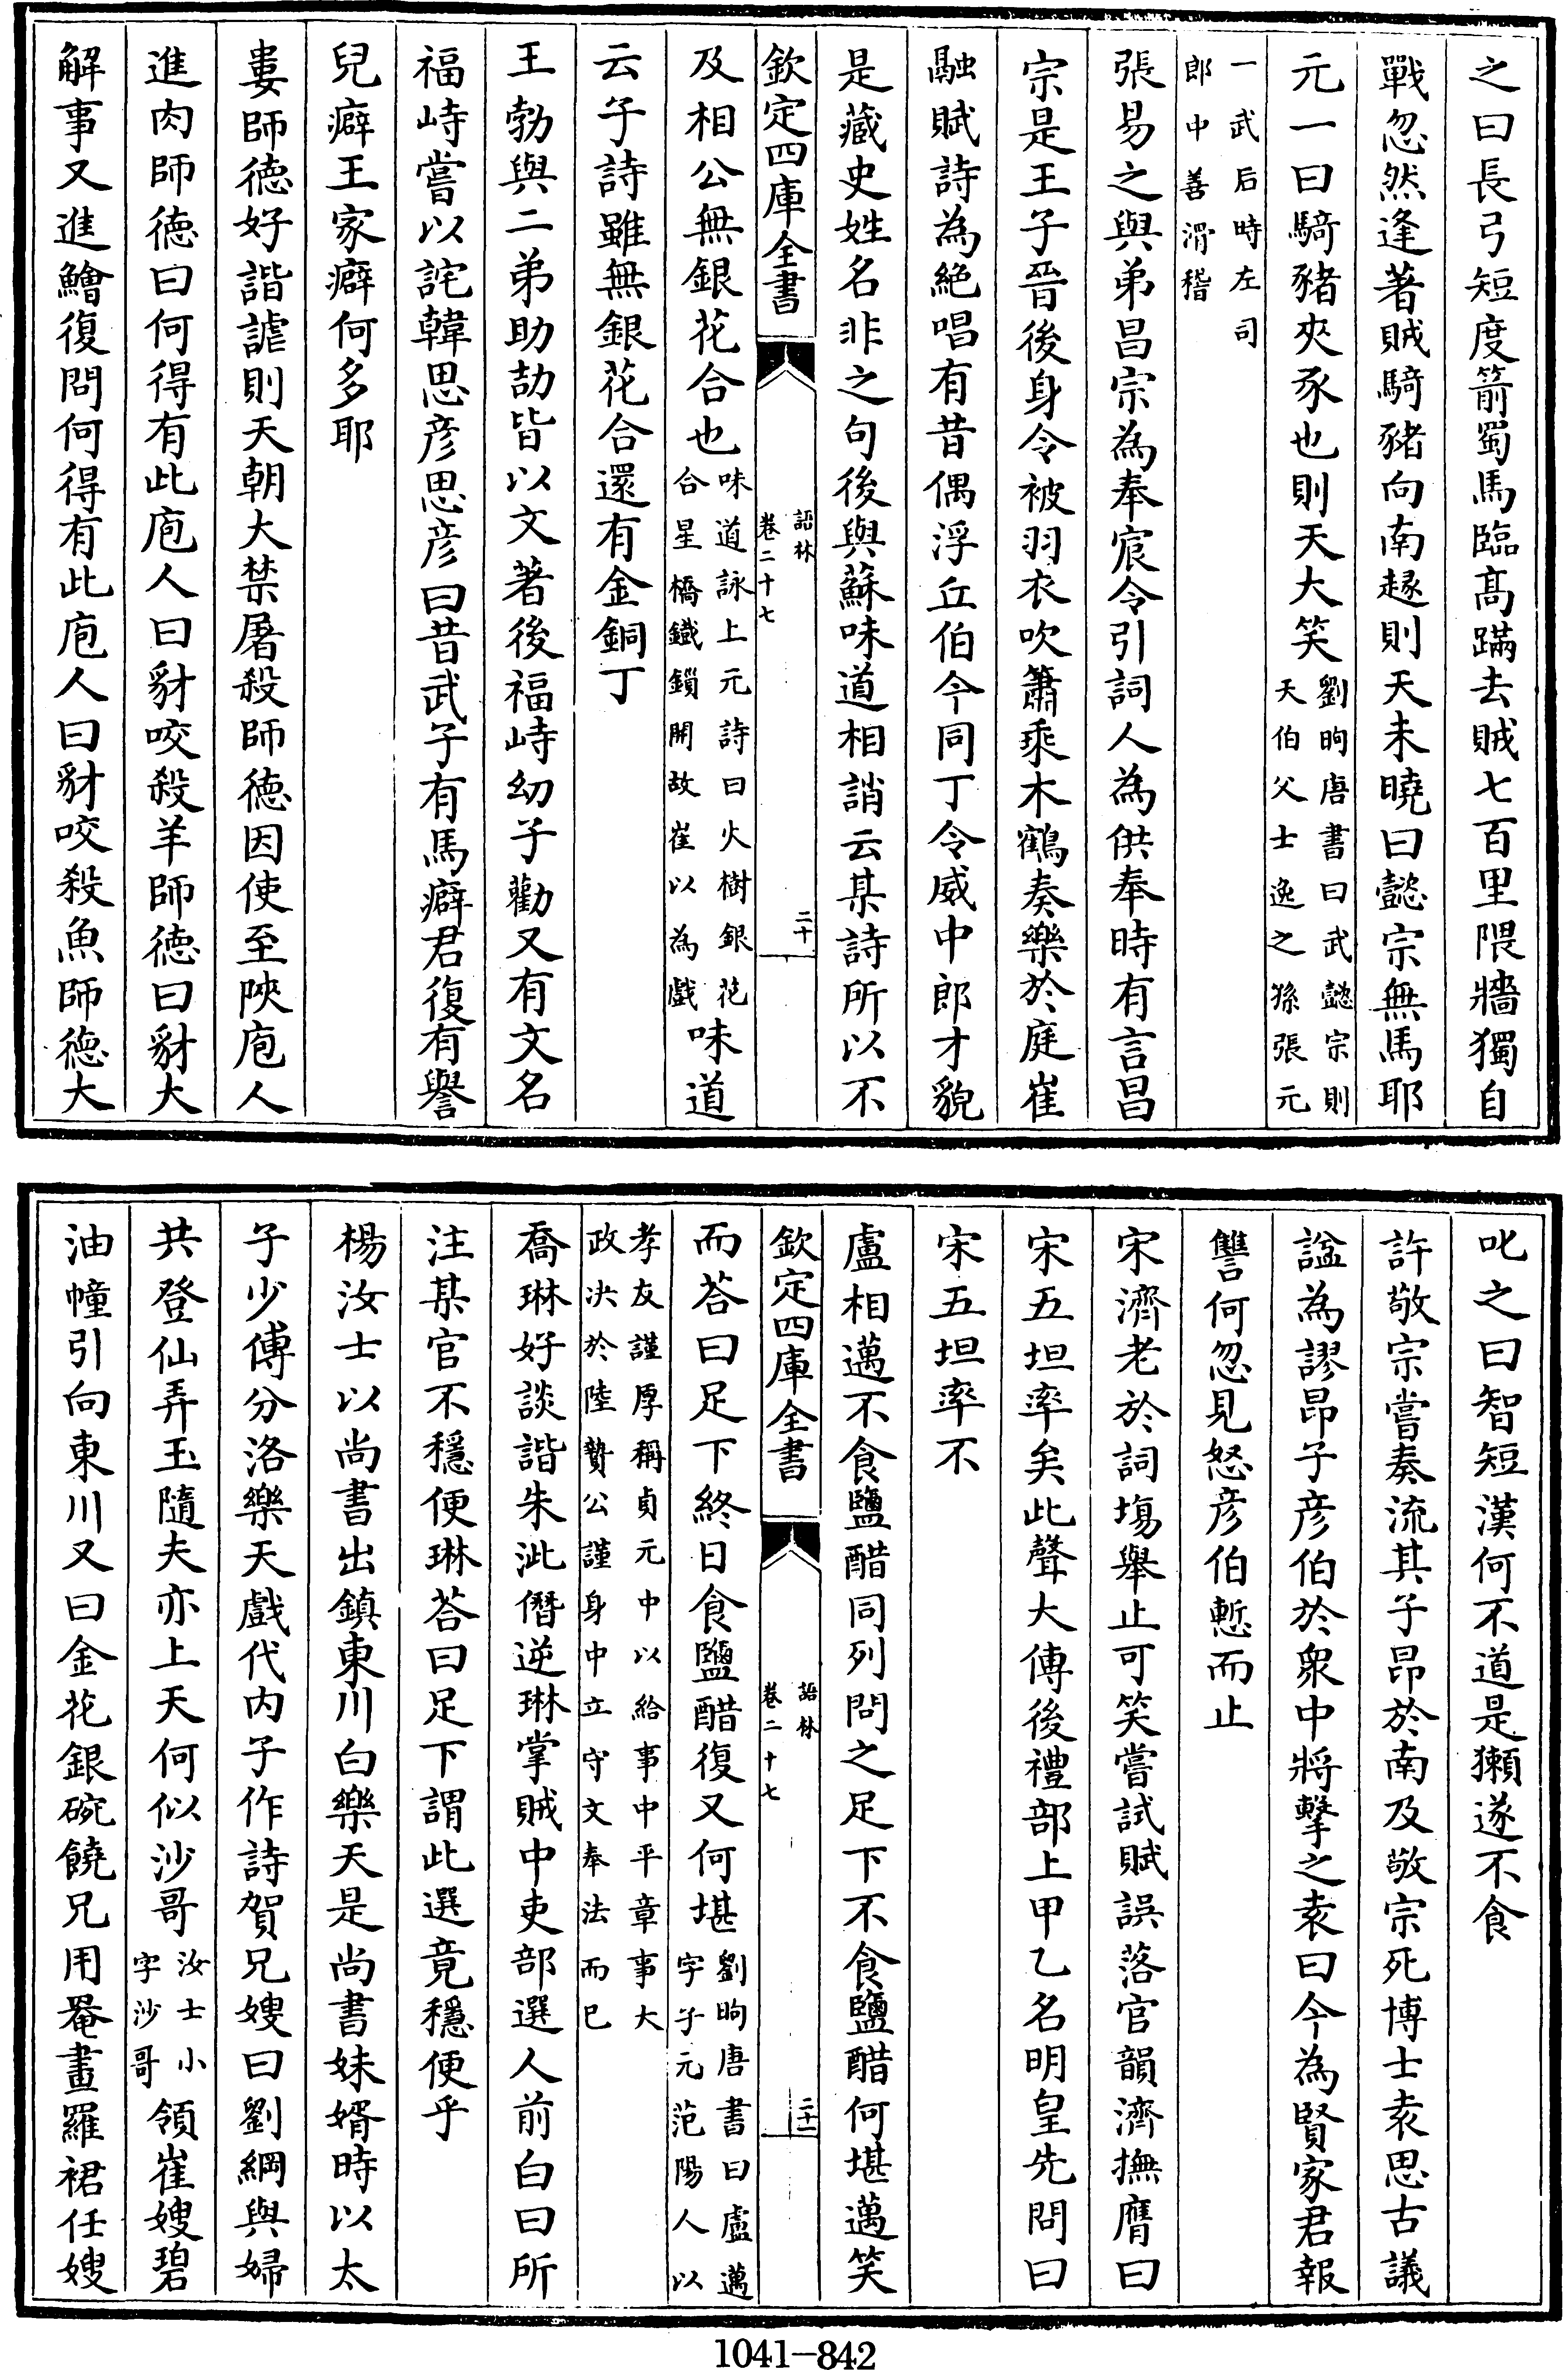 之曰長弓短度箭蜀馬臨髙蹣去賊七百里隈牆獨自
戰忽然逢著賊騎豬向南趍則天未曉曰懿宗無馬耶
元一曰騎豬夾豕也則天大笑劉昫唐書曰武懿宗則天伯父士逸之孫張元
一武后時左司郎中善滑稽
張易之與弟昌宗為奉宸令引詞人為供奉時有言昌
宗是王子晉後身令被羽衣吹簫乘木鶴奏樂於庭崔
融賦詩為絶唱有昔偶浮丘伯今同丁令威中郎才貌
是藏史姓名非之句後與蘇味道相誚云某詩所以不
欽定四庫全書 語林卷二十七 二十
及相公無銀花合也味道詠上元詩曰火樹銀花合星橋鐵鎻開故崔以為戲味道
云子詩雖無銀花合還有金銅丁
王勃與二弟助劼皆以文著後福畤幼子勸又有文名
福畤嘗以詫韓思彦思彦曰昔武子有馬癖君復有譽
兒癖王家癖何多耶
婁師徳好諧謔則天朝大禁屠殺師徳因使至陜庖人
進肉師徳曰何得有此庖人曰豺咬殺羊師徳曰豺大
解事又進鱠復問何得有此庖人曰豺咬殺魚師徳大
叱之曰智短漢何不道是獺遂不食
許敬宗嘗奏流其子昂於南及敬宗死博士袁思古議
諡為謬昂子彦伯於衆中將擊之袁曰今為賢家君報
讐何忽見怒彦伯慙而止
宋濟老於詞塲舉止可笑嘗試賦誤落官韻濟撫膺曰
宋五坦率矣此聲大傅後禮部上甲乙名明皇先問曰
宋五坦率不
盧相邁不食鹽醋同列問之足下不食鹽醋何堪邁笑
欽定四庫全書 語林卷二十七 二十一
而荅曰足下終日食鹽醋復又何堪劉昫唐書曰盧邁字子元范陽人以
孝友謹厚稱貞元中以給事中平章事大政决於陸贄公謹身中立守文奉法而已
喬琳好談諧朱泚僭逆琳掌賊中吏部選人前白曰所
注某官不穩便琳荅曰足下謂此選竟穩便乎
楊汝士以尚書出鎮東川白樂天是尚書妹婿時以太
子少傅分洛樂天戲代内子作詩賀兄嫂曰劉綱與婦
共登仙弄玉隨夫亦上天何似沙哥汝士小字沙哥領崔嫂碧
油幢引向東川又曰金花銀碗饒兄用罨畫羅裙任嫂
1041—842